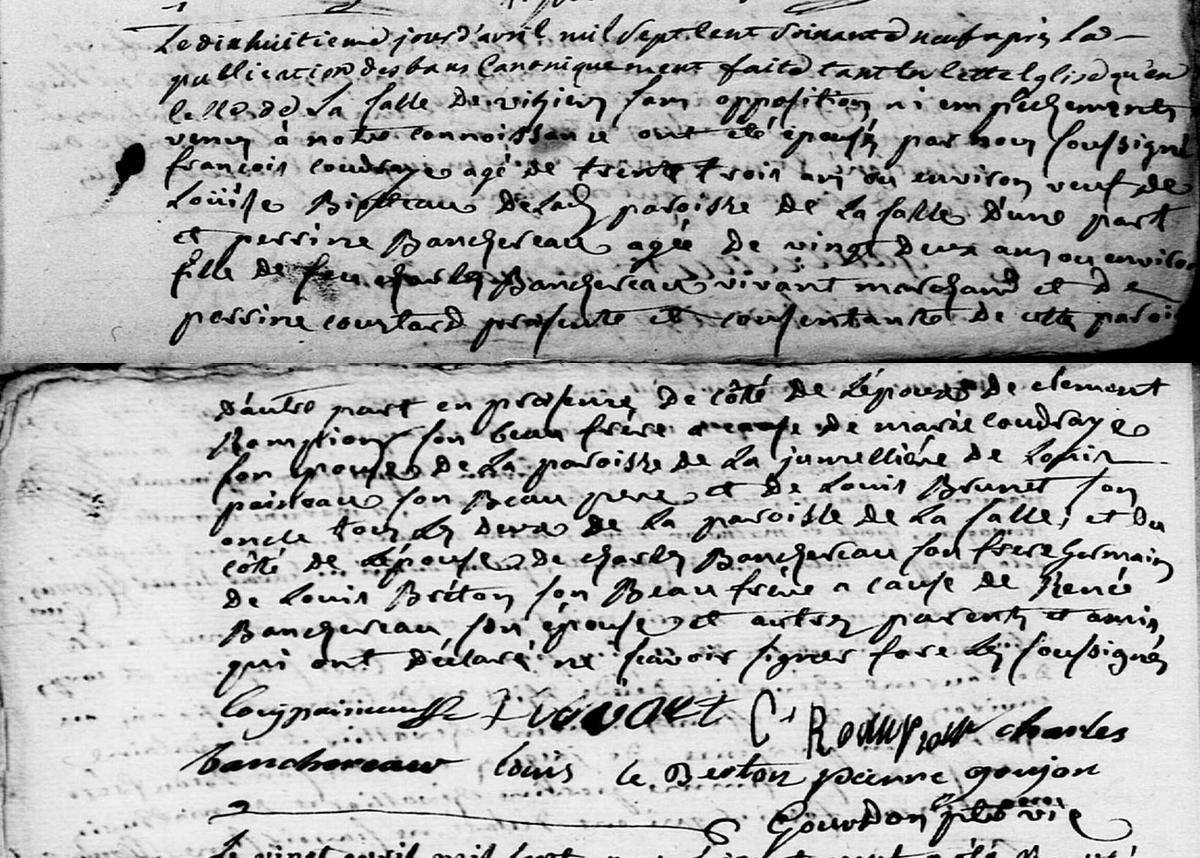 Le dixhuitieme jour d'avril mil sept cent soixante neuf apres la
publication des bans canoniquement faite tant en cette Eglise qu'en
celle de La Salle de vihiers sans opposition ni empêchements
venus à notre connoissance ont été épousés par nous soussigné
françois coudraye agé de trente trois ans ou environ veuf de
Loüise de lad paroisse de La Salle d'une part
et perrine Banchereau agée de vingt deux ans ou environ
fille de feu charles Banchereau vivant marchand et de
perrine coustard presente et consentante de cette paroi
d'autre part en presence, de côté de L'époux de clement
son beau frère a cause de marie coudraye
son epouse de La paroisse de La jumelliere de Louis
paineau son Beau pere et de Louis Brunet son
oncle tous les deux de la paroisse de La Salle, et du
côté de L'épouse de charles Banchereau son frère Germain
de Louis Bréton son Beau frère a cause de Renée
Banchereau son épouse et autres parents et amis
qui ont déclaré ne scavoir signer fors les soussignés
Louis paineau C charles
banchereau Louis le Breton perinne goujon
Gourdon ptre vic
Le vinet avril mil sept